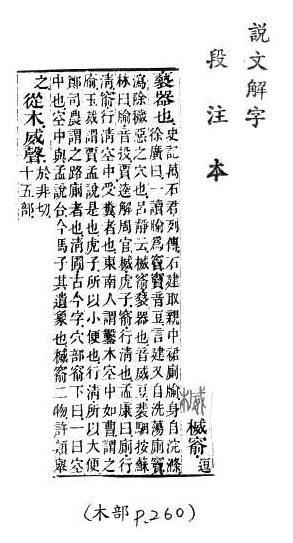 説文解字
段注本
楲 楲窬。逗
褻器也。史記萬石君列傳石建取親中裙廁牏身自浣滌
徐廣曰一讀牏爲竇竇音豆言建又自洗蕩廁竇
瀉除穢惡之穴也呂靜云楲窬褻器也音威豆裴駰按蘇
林曰牏音投賈逵解周官楲虎子窬行清也孟康曰廁行
清窬行清空中受糞者也東南人謂鑿木空中如曹謂之
牏玉裁謂賈孟說是也虎子所以小便也行清所以大便
鄭司農謂之路廁者也清圊古今字穴部窬下曰一曰空
中也空中與孟說合今馬子其遺象也楲窬二物許類舉
之 從木。威聲。於非切
十五部
(木部 p.260)